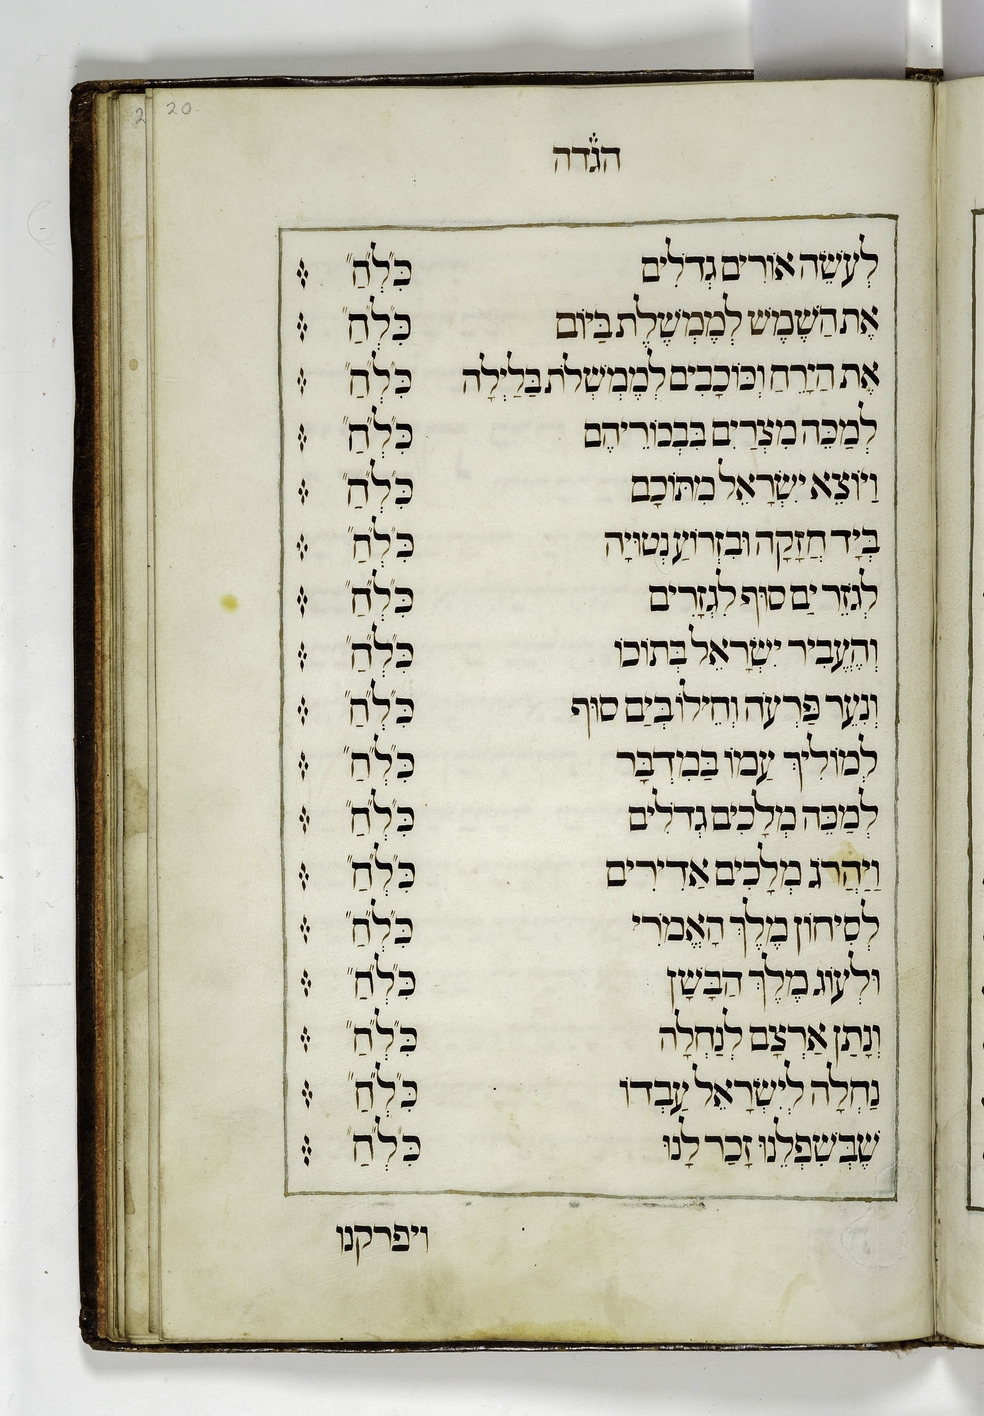 20
הגדה
לְעֹשֵׂה אוֹרִים גְדֹלִים כִּלְחַ
אֶת הַשֶׁמֶשׁ לְמֶמְשֶׁלֶת בַּיוֹם כִּלְחַ
אֶת הַיָרֵחַ וְכוֹכָבִים לְמֶמְשְׁלוֹת בַּלַיְלָה כִּלְחַ
לְמַכֵּה מִצְרַיִם בִּבְכוֹרֵיהֶם כִּלְחַ
וַיוֹצֵא יִשְׂרָאֵל מִתּוֹכָם כִּלְחַ
בְּיָד חֲזָקָה וּבִזְרוֹעַ נְטוּיָה כִּלְחַ
לְגֹזֵר יַם סוּף לִגְזָרִים כִּלְחַ
וְהֶעֱבִיר יִשְׂרָאֵל בְּתוֹכוֹ כִּלְחַ
וְנִעֵר פַּרְעֹה וְחֵילוֹ בְּיַם סוּף כִּלְחַ
לְמוֹלִיךְ עַמוֹ בַּמִדְבָּר כִּלְחַ
לְמַכֵּה מְלָכִים גְדֹלִים כִּלְחַ
וַיַהֲרֹג מְלָכִים אַדִירִים כִּלְחַ
לְסִיחוֹן מֶלֶךְ הָאֱמֹרִי כִּלְחַ
וּלְעוֹג מֶלֶךְ הַבָּשָׁן כִּלְחַ
וְנָתַן אַרְצָם לְנַחְלָה כִּלְחַ
נַחְלָה לְיִשְׂרָאֵל עַבְדוֹ כִּלְחַ
שֶׁבְּשִׁפְלֵנוּ זָכַר לָנוּ כִּלְחַ
ויפרקנו